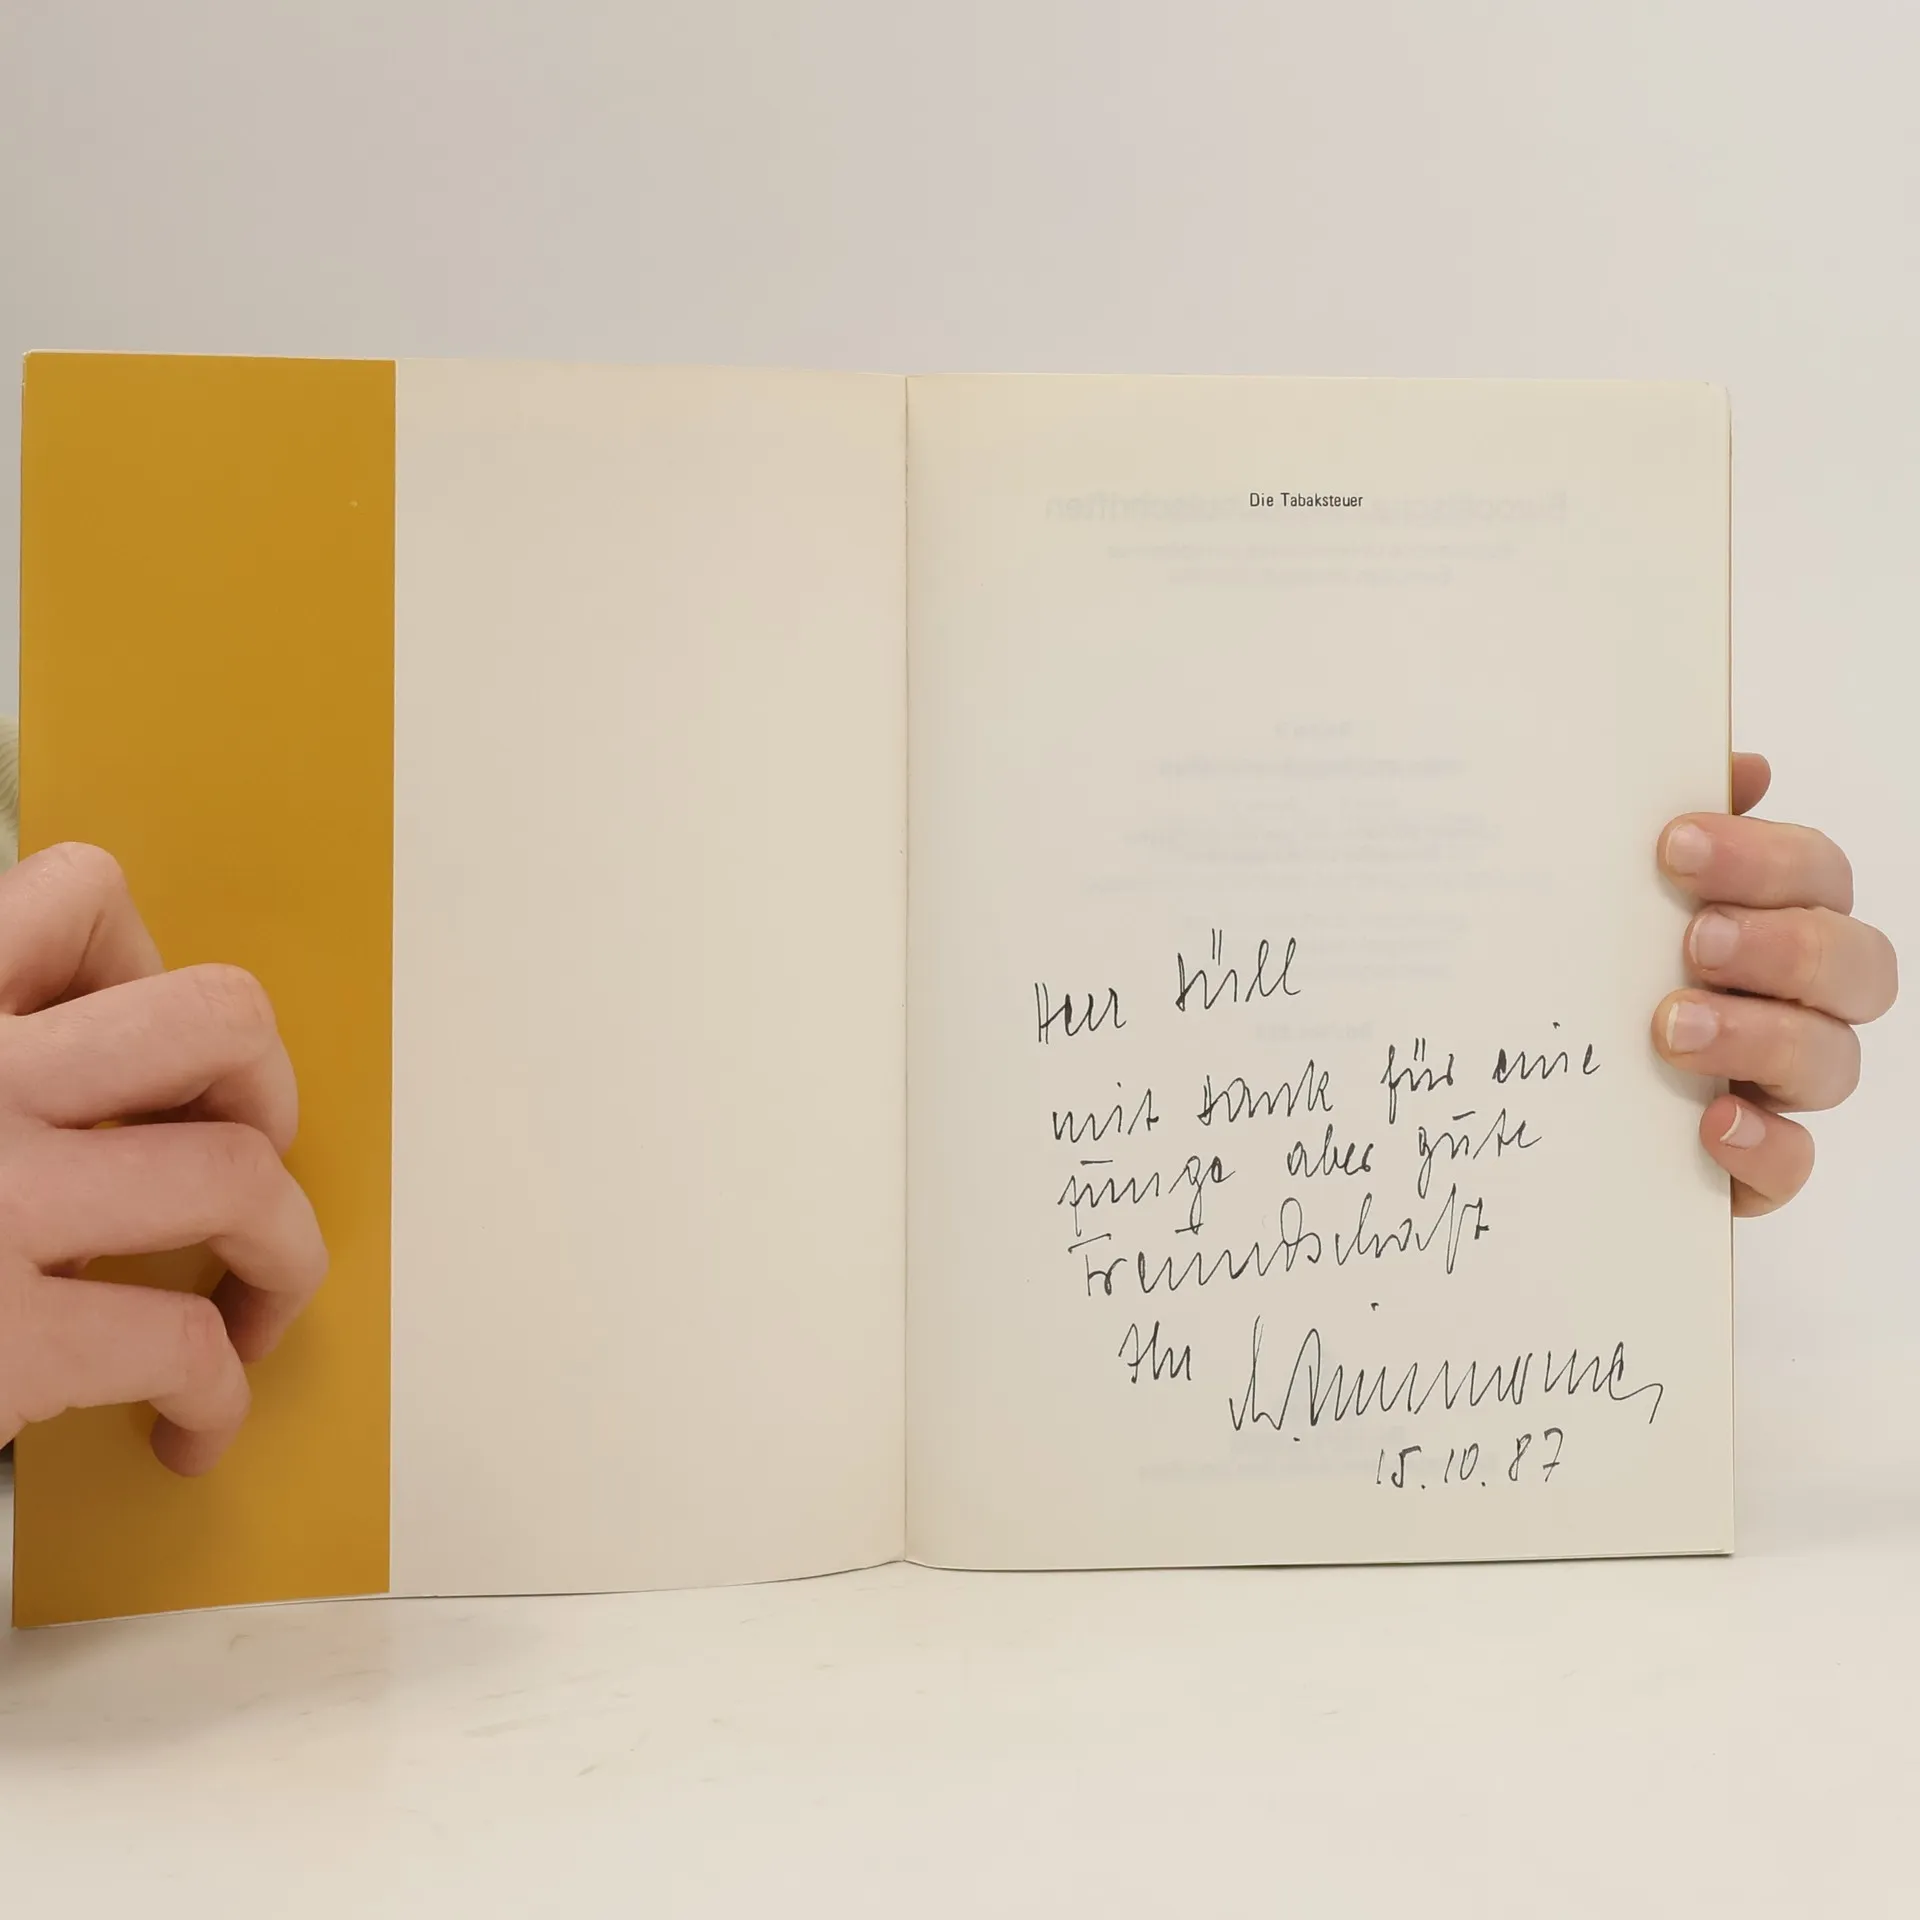 Die Tabaksteuer
Herr Düll
mit Dank für eine
junge aber gute
Freundschaft
Ihr
15.10.87